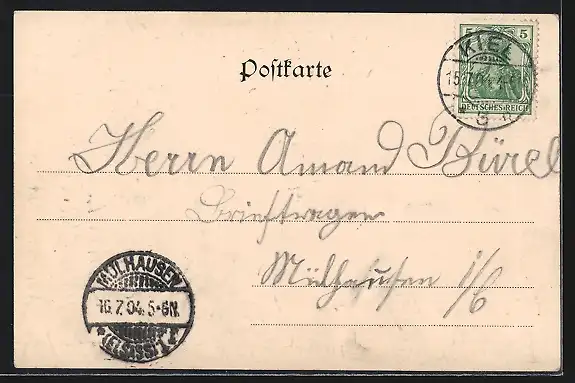 Postkarte
5 5
DEUTSCHES REICH
KIEL
15.7.04.
Herrn Amand Bürel
Briefträger
Mülhausen i/E
MÜLHAUSEN
16.7.04.5-6N.
(ELSASS) 1